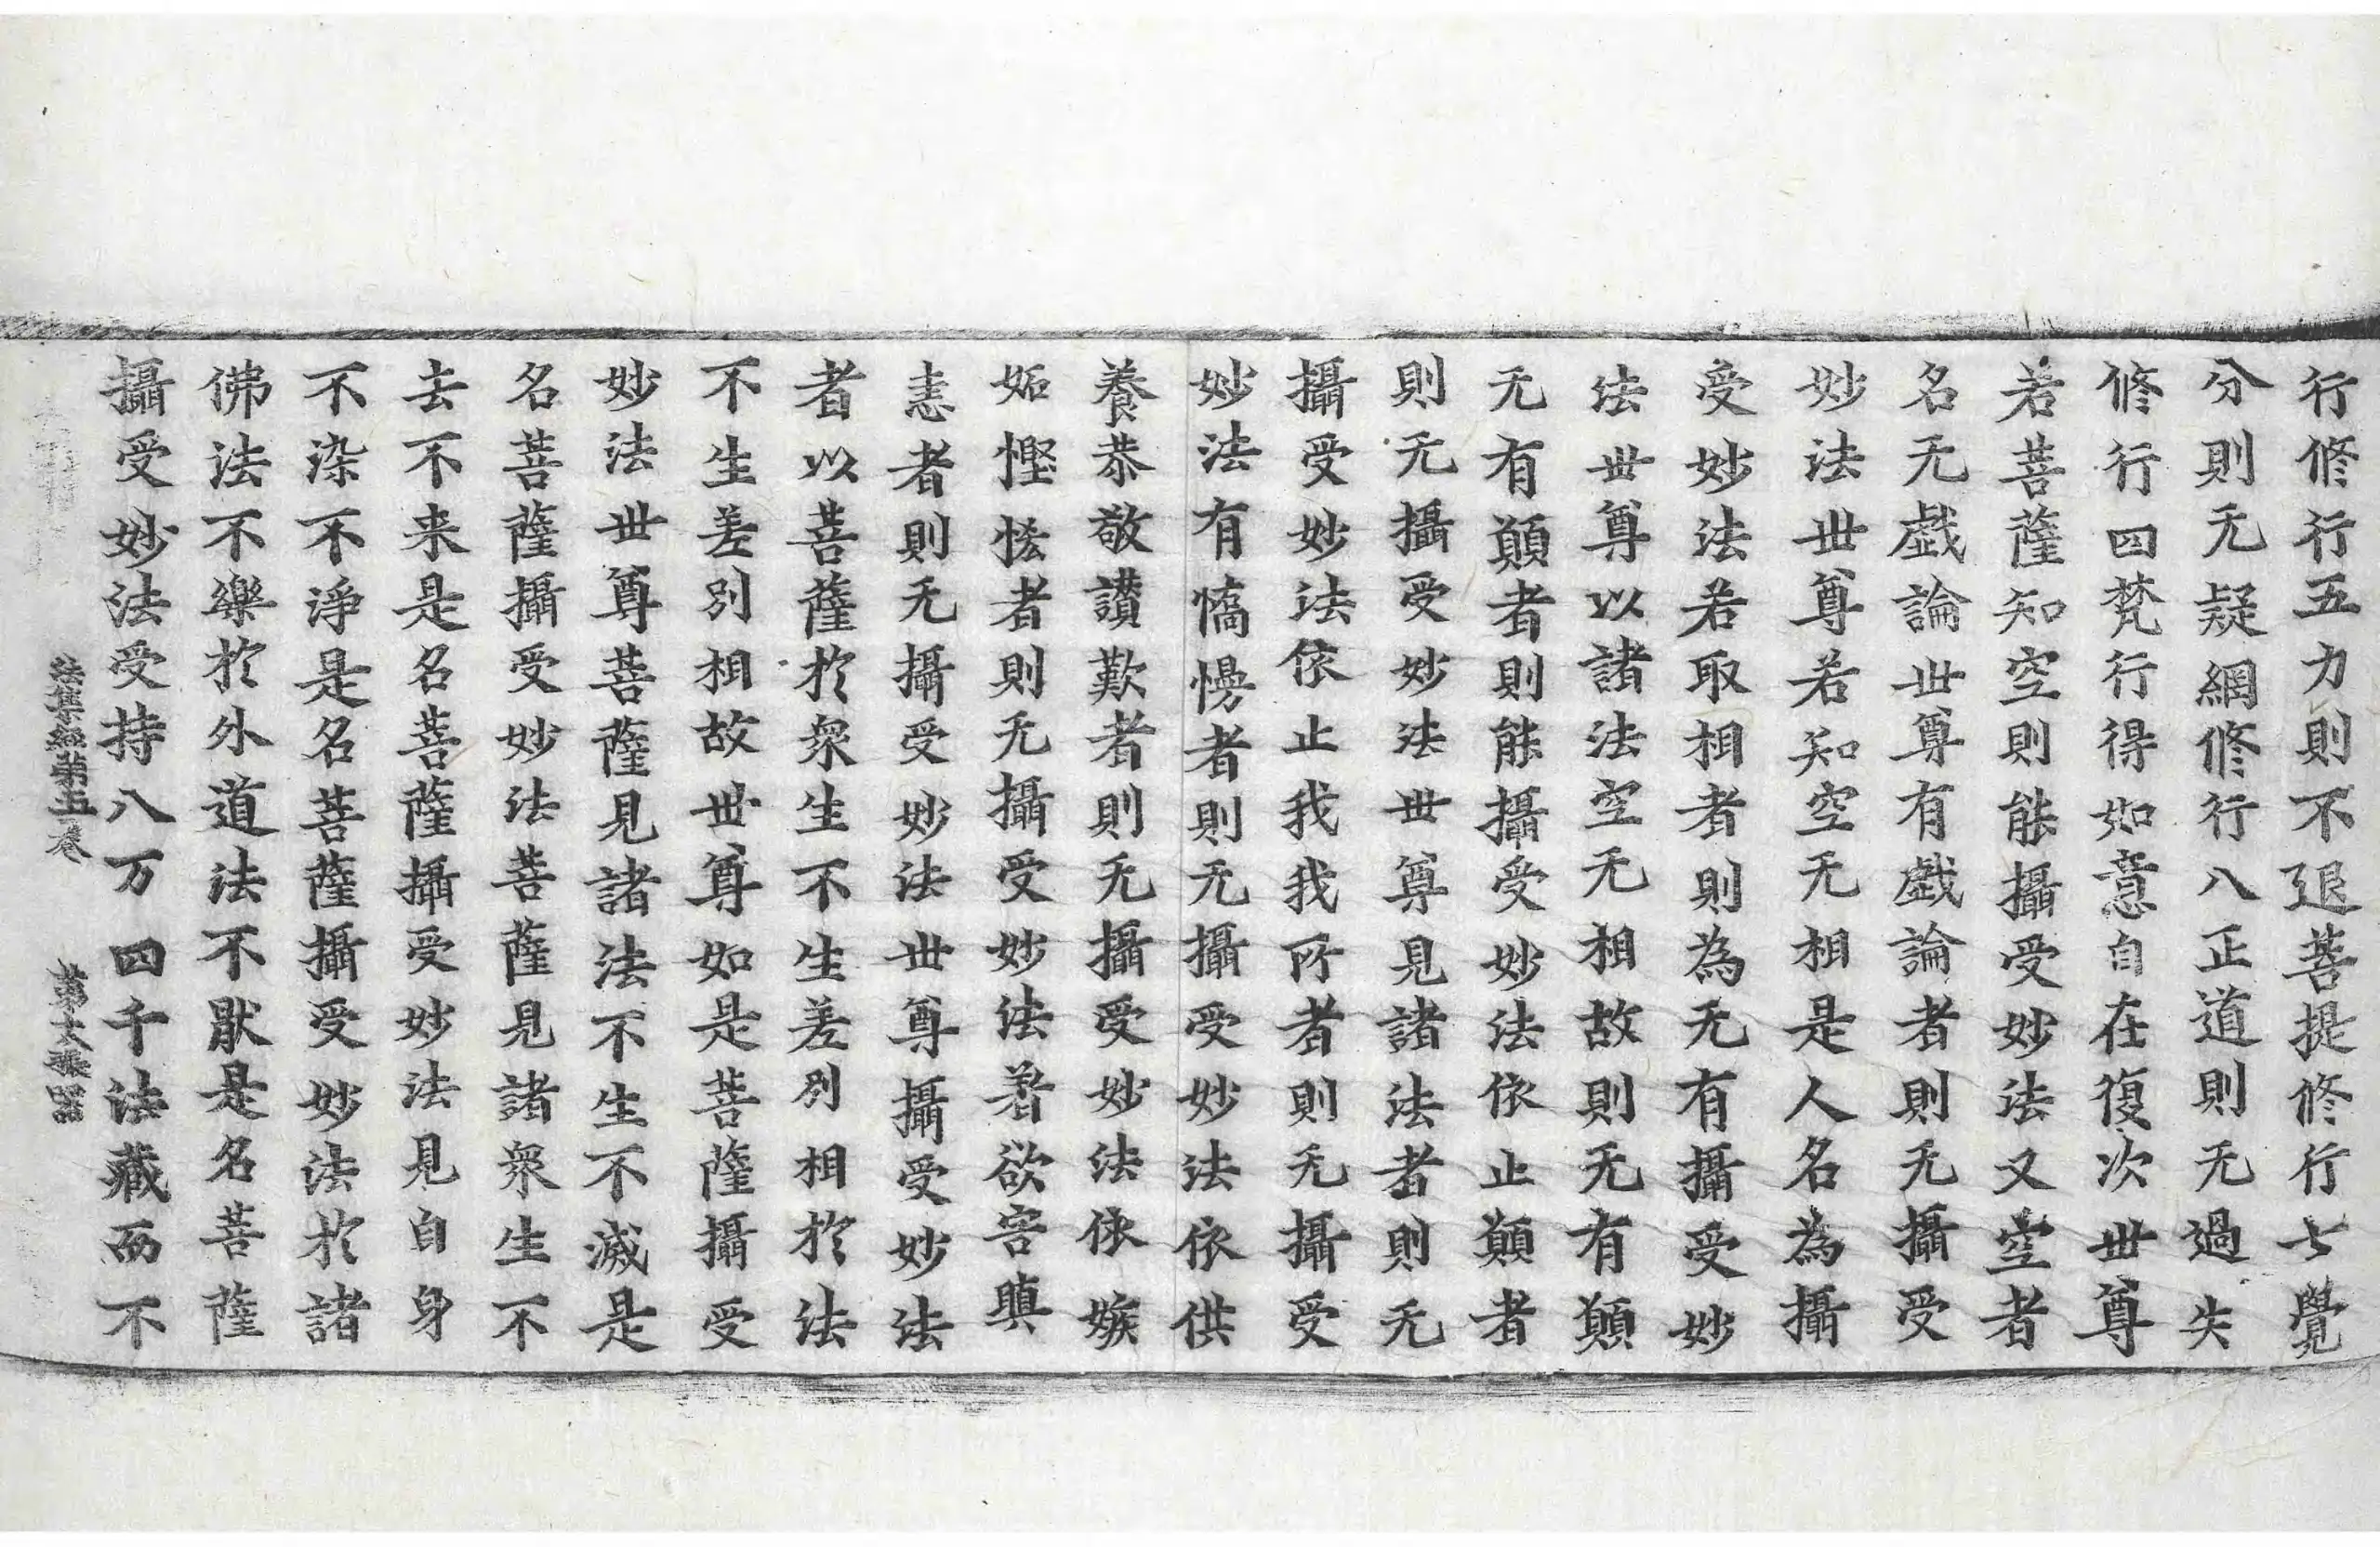 行修行五力則不退菩提修行七覺
分則无疑網修行八正道則无過失
修行四梵行得如意自在復次世尊
若菩薩知空則能攝受妙法又空者
名无戲論世尊有戲論者則无攝受
妙法世尊若知空无相是人名為攝
受妙法若取相者則為无有攝受妙
法世尊以諸法空无相故則无有願
无有願者則能攝受妙法依止願者
則无攝受妙法世尊見諸法者則无
攝受妙法依止我我所者則无攝受
妙法有憍慢者則无攝受妙法依供
養恭敬讃歎者則无攝受妙法依嫉
妬慳悋者則无攝受妙法著欲害瞋
恚者則无攝受妙法世尊攝受妙法
者以菩薩於衆生不生差別相於法
不生差別相故世尊如是菩薩攝受
妙法世尊菩薩見諸法不生不滅是
名菩薩攝受妙法菩薩見諸衆生不
去不来是名菩薩攝受妙法見自身
不染不淨是名菩薩攝受妙法於諸
佛法不樂於外道法不猒是名菩薩
攝受妙法受持八万四千法藏而不
法集經第五卷 第六張